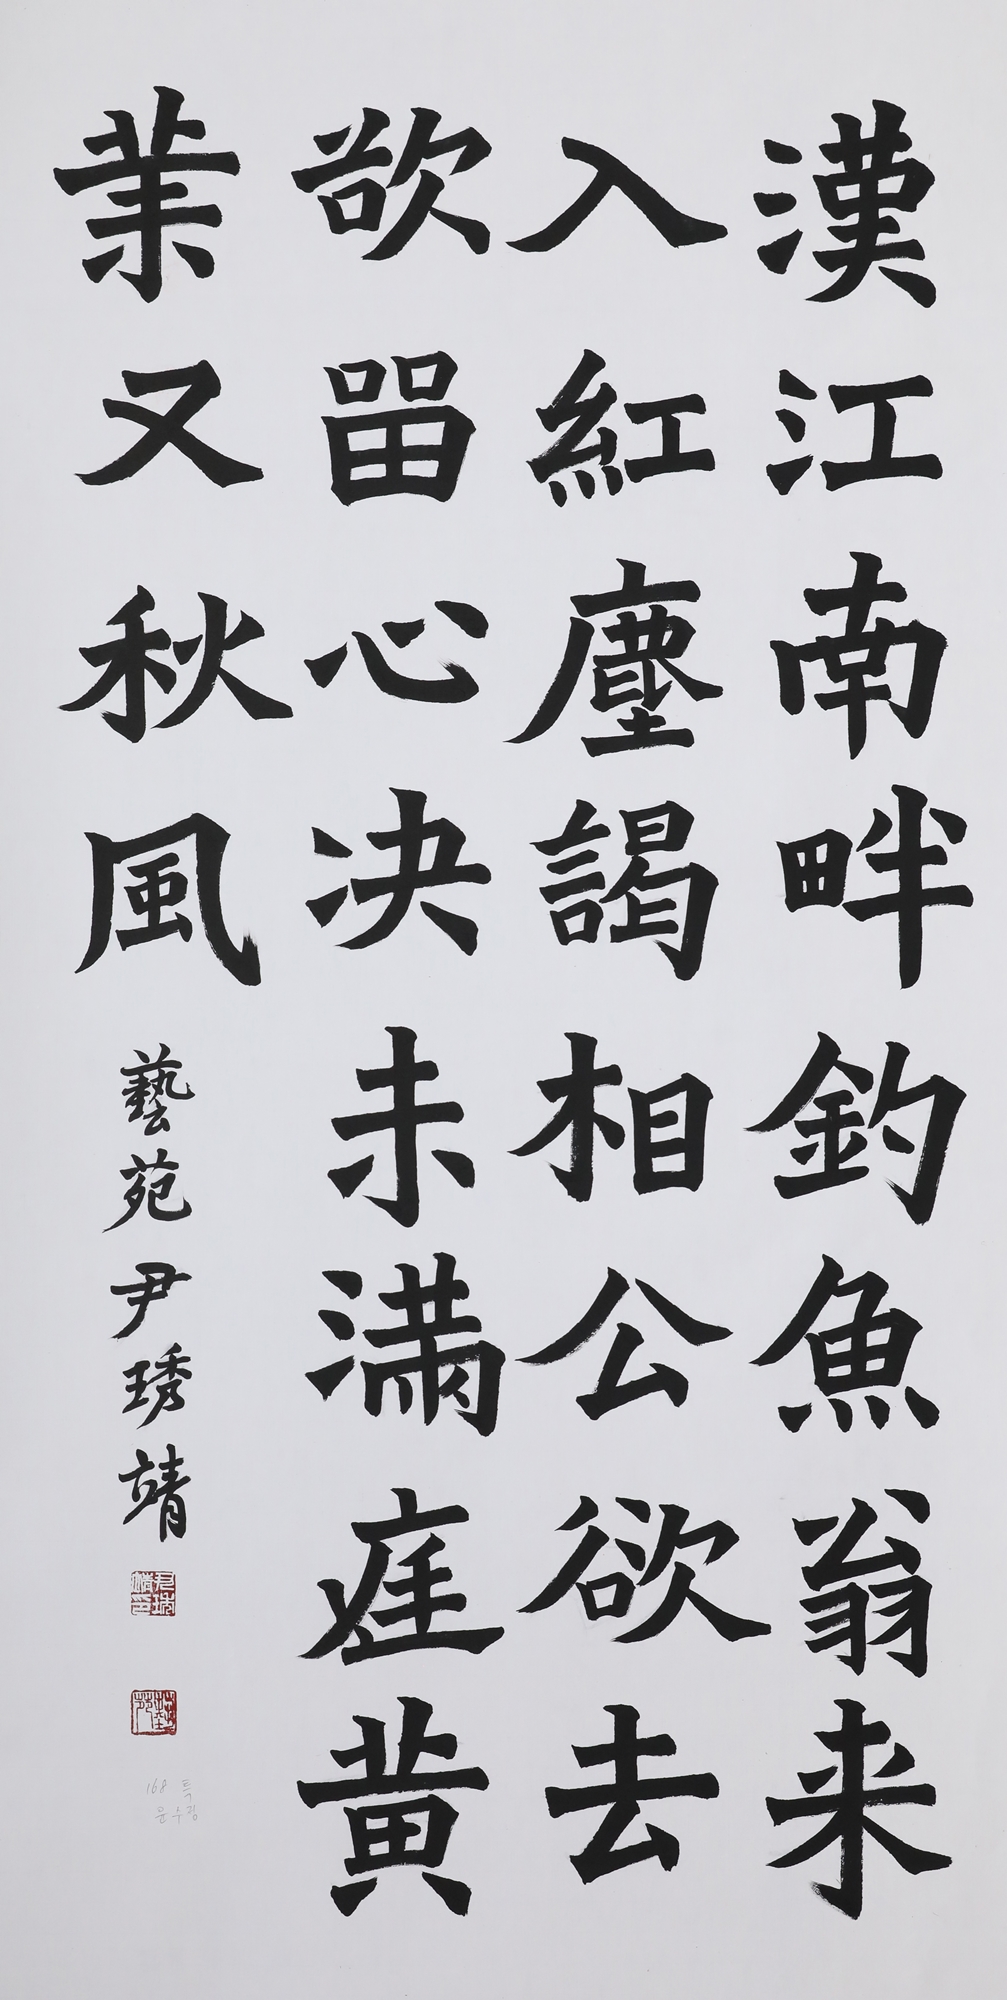 漢江南畔釣魚翁来
入紅塵謁相公欲去
欲留心決未満庭黄
葉又秋風
藝苑尹琇靖
168 특
윤수정